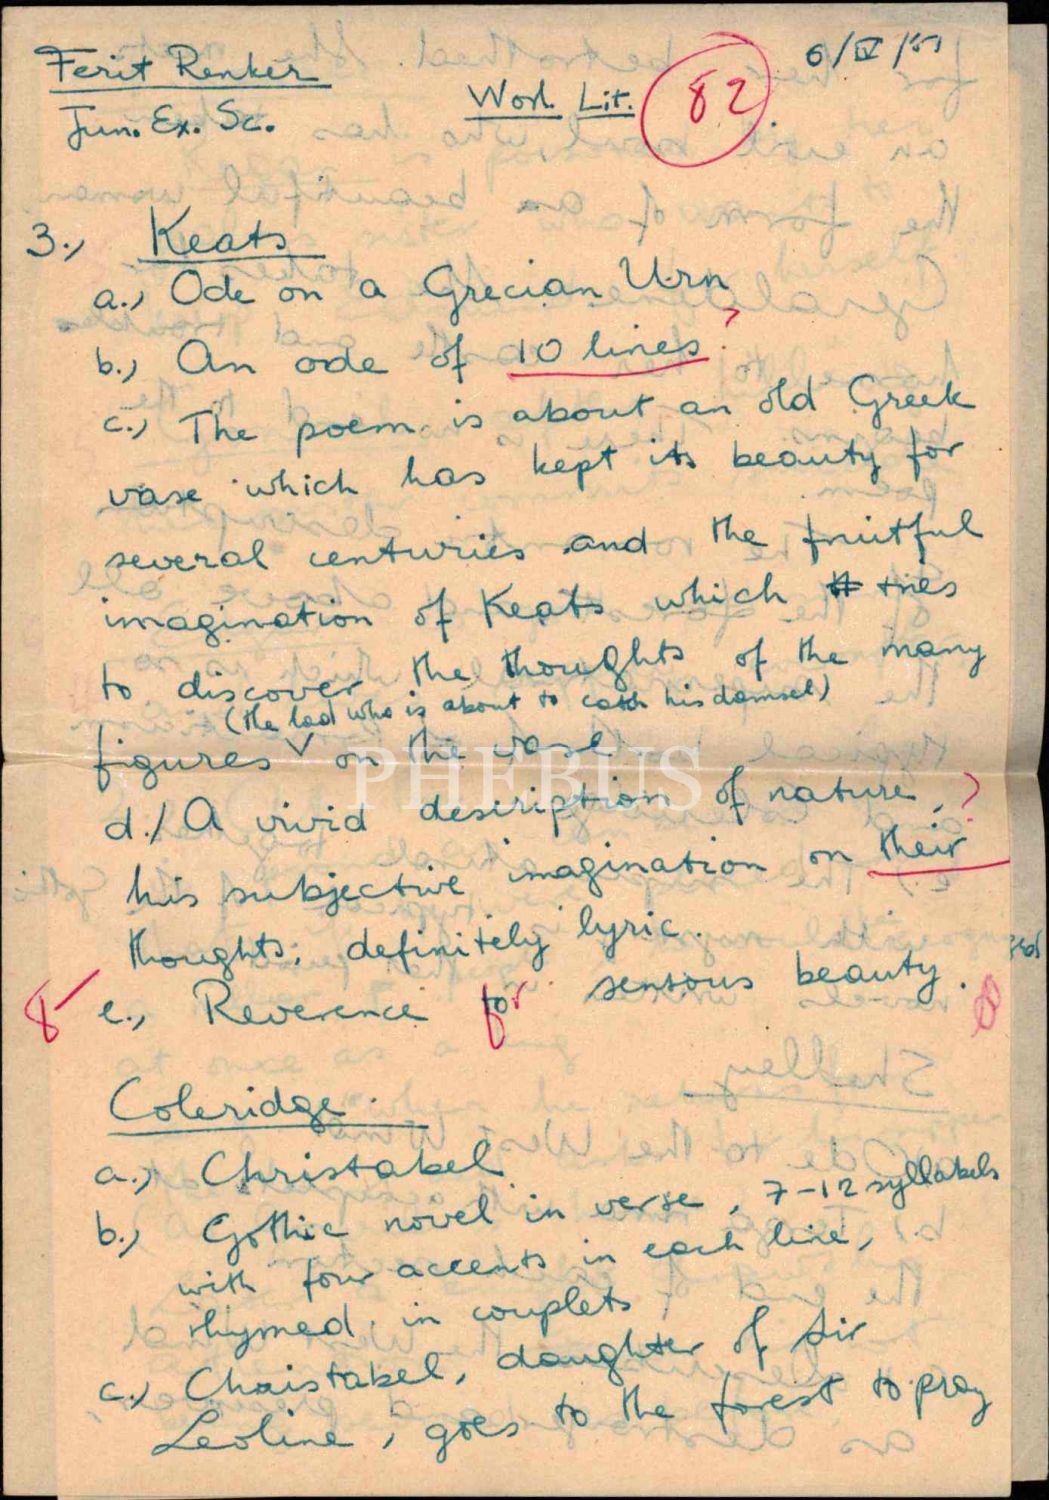 Ferit Renker
Jun. Ex. Sc.
Worl. Lit.
82
6/IV/51
3., Keats
a., Ode on a Grecian Urn
b., An ode of 10 lines ?
c., The poem is about an old Greek
vase which has kept its beauty for
several centuries and the fruitful
imagination of Keats which tries
to discover the thoughts of the many
(the lad who is about to catch his damsel)
figures V on the vase
d./ A vivid desiription of nature, ?
his subjective imagination on their
thoughts; definitely lyric.
8 e., Reverence for sensous beauty.
Coleridge.
a., Christabel
b., Gothic novel in verse, 7-12 syllabels
with four accents in each line,
rhymed in couplets
c., Christabel, daughter of Sir
Leoline, goes to the forest to pray
PHEBUS